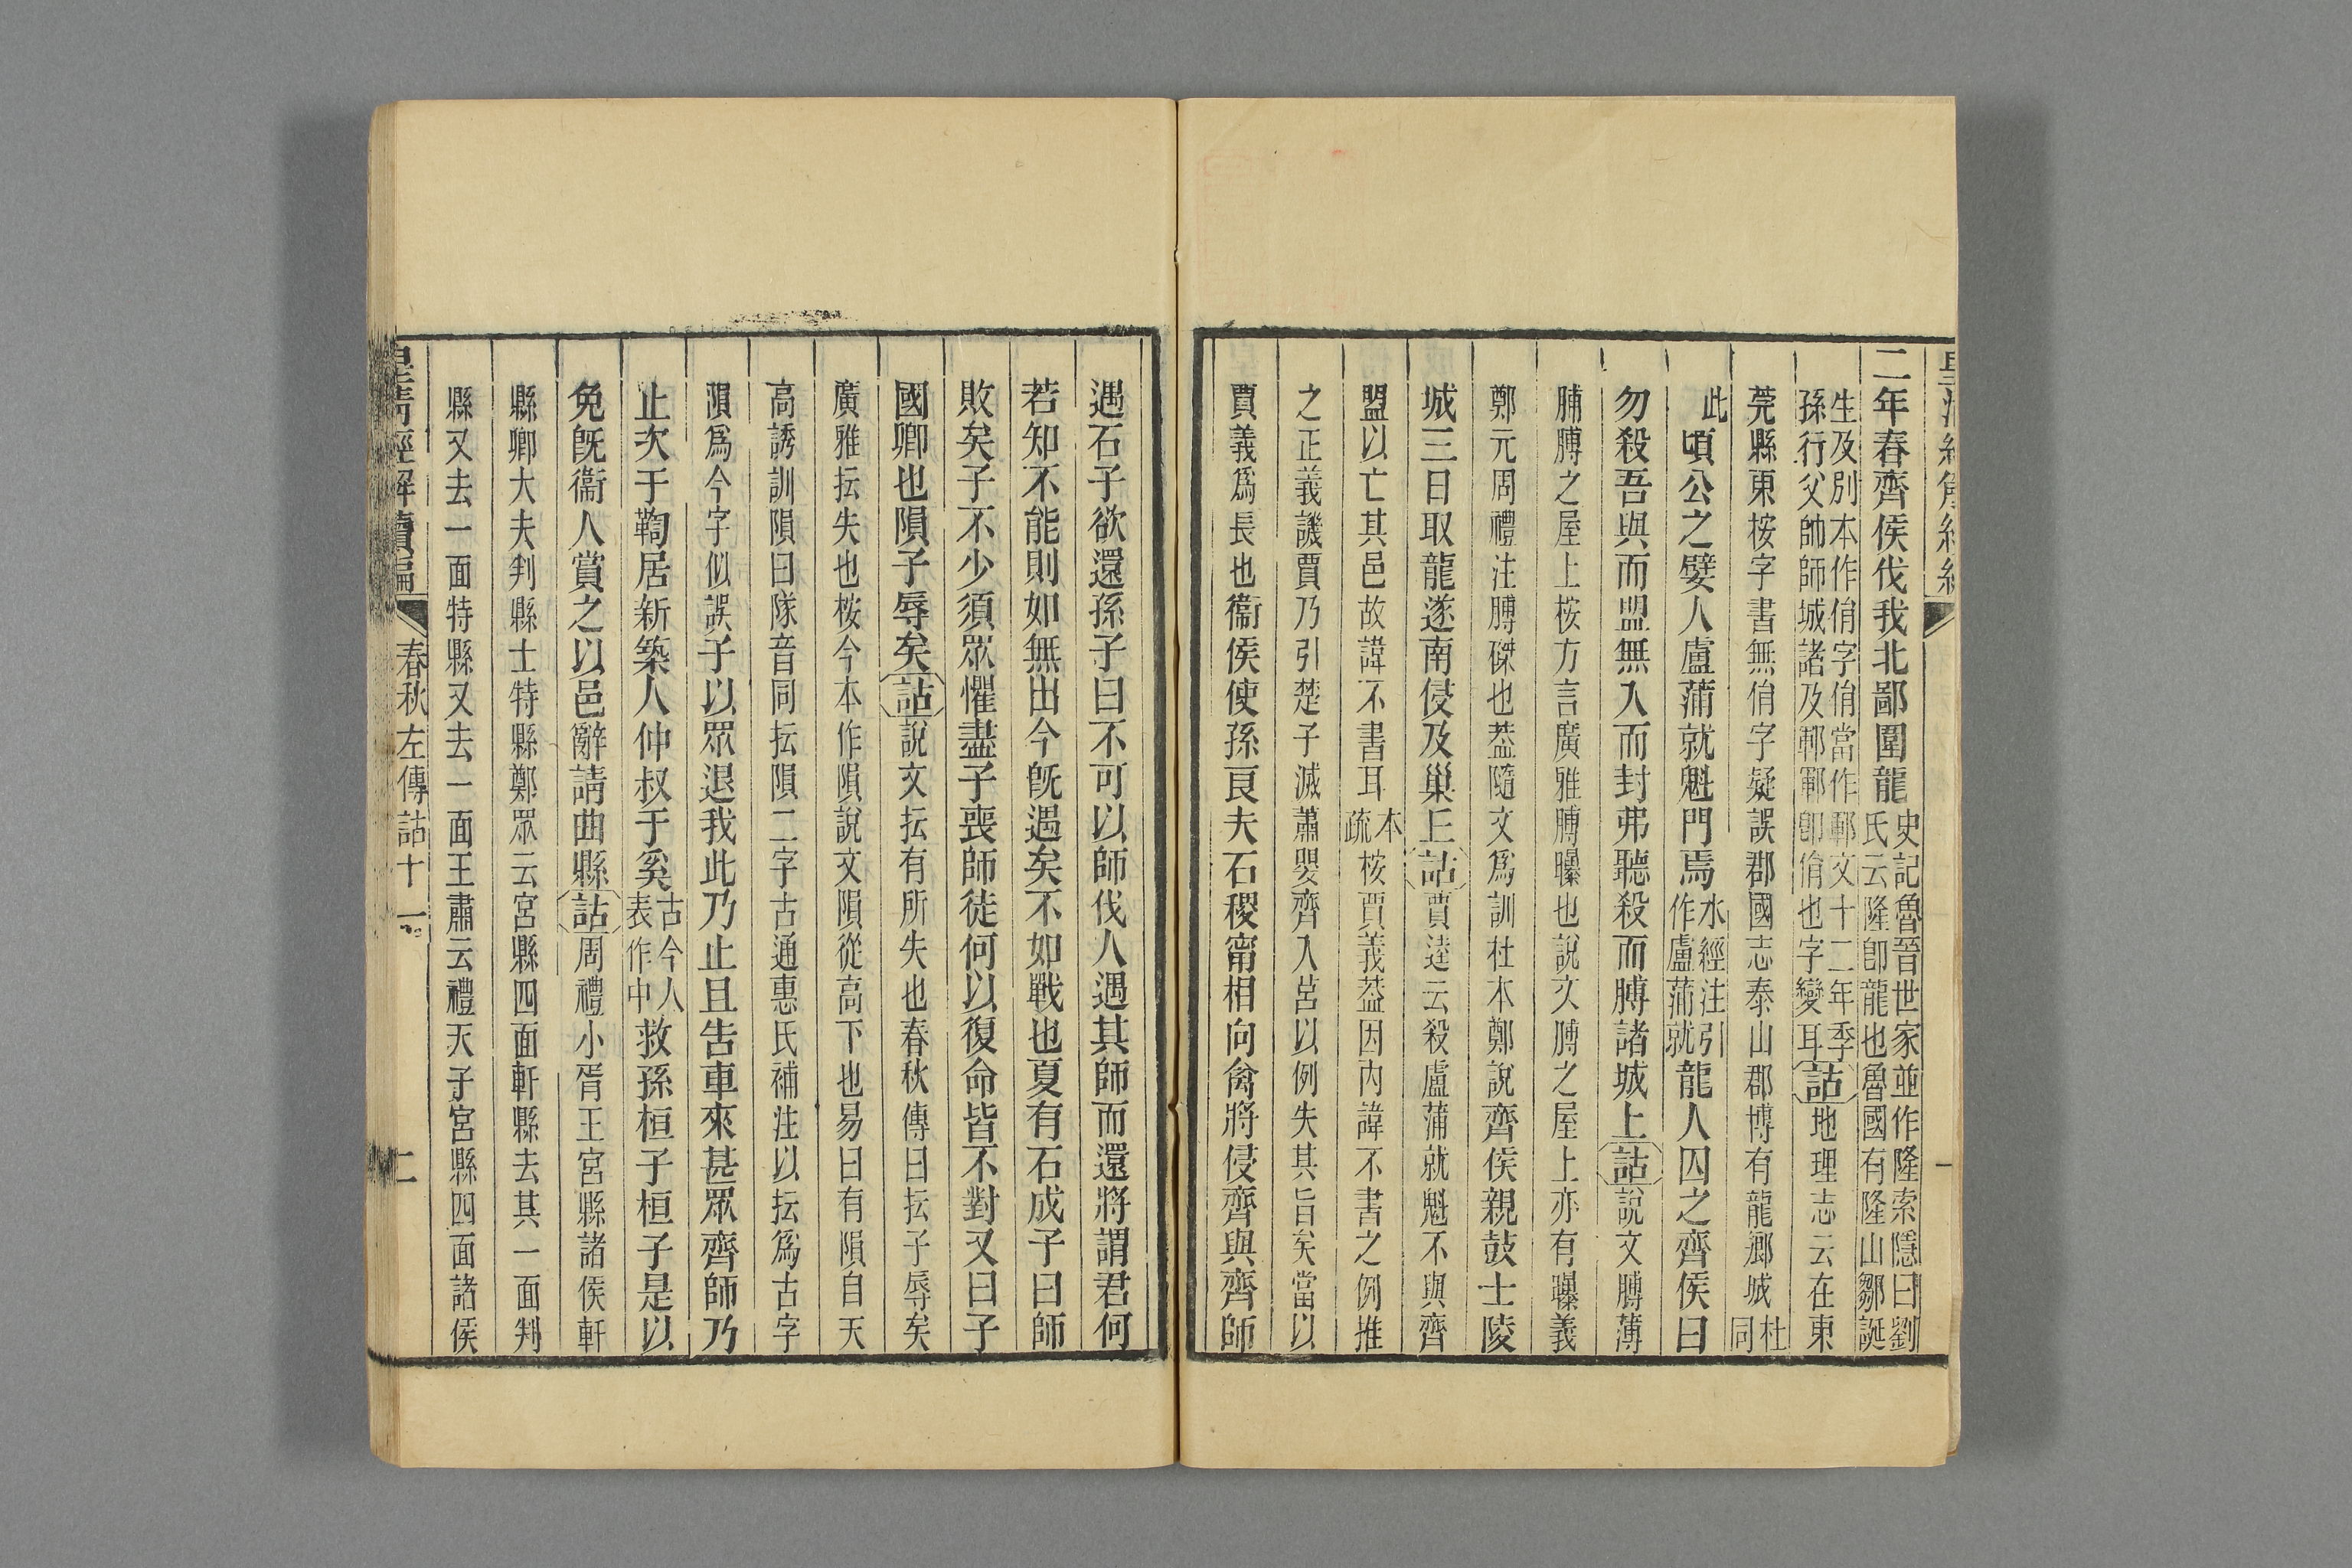 二年春齊侯伐我北鄙圍龍史記魯晉世家並作隆索隱曰劉氏云隆卽龍也魯國有隆山鄒誕
生及別本作俏字俏當作鄆文十二年季孫行父帥師城諸及鄆鄆卽俏也字變耳詁地理志云在東
莞縣東桉字書無俏字疑誤郡國志泰山郡博有龍鄉城杜同
此頃公之嬖人盧蒲就魁門焉水經注引作盧蒲就龍人囚之齊侯曰
勿殺吾與而盟無入而封弗聽殺而膊諸城上詁說文膊薄
脯膊之屋上桉方言廣雅膊曝也說文膊之屋上亦有曝義
鄭元周禮注膊磔也葢隨文爲訓杜本鄭說齊侯親鼓士陵
城三日取龍遂南侵及巢丘詁賈逵云殺盧蒲就魁不與齊
盟以亡其邑故諱不書耳本疏桉賈義葢因內諱不書之例推
之正義譏賈乃引楚子滅蕭嬰齊入莒以例失其旨矣當以
賈義爲長也衞侯使孫良夫石稷甯相向禽將侵齊與齊師
遇石子欲還孫子曰不可以師伐人遇其師而還將謂君何
若知不能則如無出今旣遇矣不如戰也夏有石成子曰師
敗矣子不少須眾懼盡子喪師徒何以復命皆不對又曰子
國卿也隕子辱矣詁說文抎有所失也春秋傳曰抎子辱矣
廣雅抎失也桉今本作隕說文隕從高下也易曰有隕自天
高誘訓隕曰隊音同抎隕二字古通惠氏補注以抎爲古字
隕爲今字似誤子以眾退我此乃止且告車來甚眾齊師乃
止次于鞫居新築人仲叔于奚古今人表作中救孫桓子桓子是以
免旣衞人賞之以邑辭請曲縣詁周禮小胥王宮縣諸侯軒
縣卿大夫判縣士特縣鄭眾云宮縣四面軒縣去其一面判
縣又去一面特縣又去一面王肅云禮天子宮縣四面諸侯
皇清經解續編 春秋左傳詁十一 二